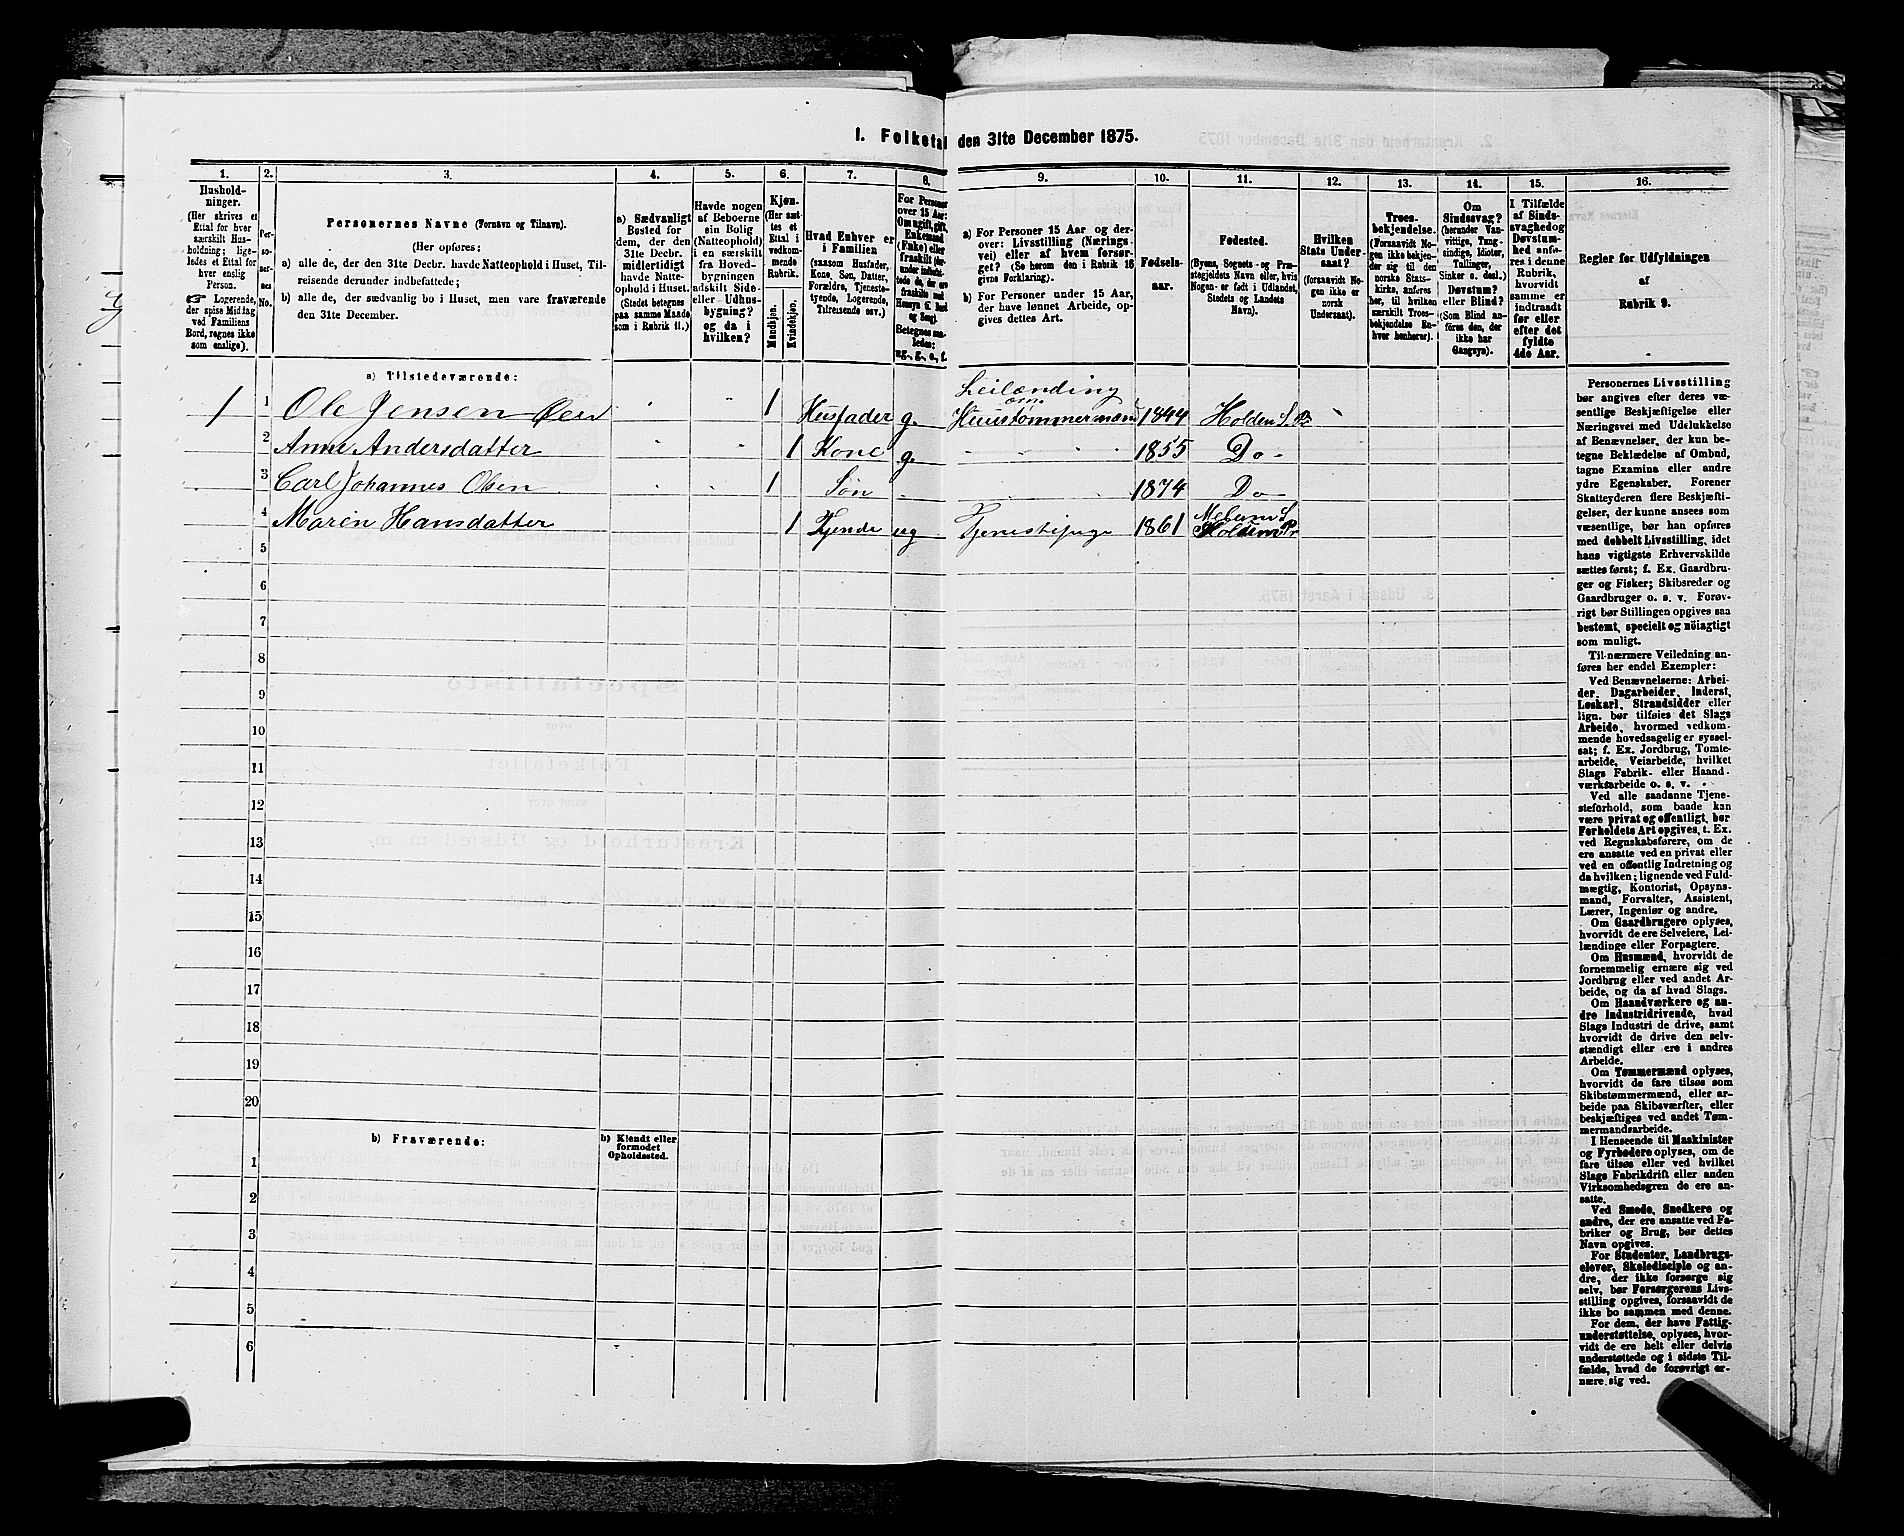 1. Folketal den 31te December 1875.
1. 2. 3. 4. 5. 6. 7. 8. 9. 10. 11. 12. 13. 14. 15. 16.
Hushold-
ninger.
(Her skrives et
Ettal for hver
særskilt Hus-
holdning; lige-
ledes et Ettal for
hver enslig
Person.
☞ Logerende,
der spise Middag
ved Familiens
Bord, regnes ikke
som enslige).
Per-
so-
ner-
nes
No.
Personernes Navne (Fornavn og Tilnavn).
(Her opføres:
a) alle de, der den 31te Decbr. havde Natteophold i Huset, Til-
reisende derunder indbefattede;
b) alle de, der sædvanlig bo i Huset, men vare fraværende
den 31te December.
a) Sædvanligt
Bosted for
dem, der den
31te Decbr.
midlertidigt
havde Natte-
ophold i Huset.
(Stedet betegnes
paa samme Maade
som i Rubrik 11.)
Havde nogen
af Beboerne
sin Bolig
(Natteophold)
i en særskilt
fra Hoved-
bygningen
adskilt Side-
eller Udhus-
bygning?
og da i
hvilken?
Kjøn.
(Her sæt-
tes et
Ettal i
vedkom-
mende
Rubrik.
Mandkjøn.
Kvindekjøn.
Hvad Enhver er
i Familien
(saasom Husfader,
Kone, Søn, Datter,
Forældre, Tjeneste-
tyende, Logerende,
Tilreisende osv.)
For Personer
over 15 Aar:
Om ugift, gift,
Enkemand
(Enke) eller
fraskilt
Betegnes saa-
ledes:
ug., g., e., f.
a) For Personer 15 Aar og der-
over: Livsstilling (Nærings-
vei) eller af hvem forsør-
get? (Se herom den i Rubrik 16
givne Forklaring).
b) For Personer under 15 Aar,
der have lønnet Arbeide, op-
gives dettes Art.
Fødsels-
aar.
Fødested.
(Byens, Sognets- og Præ-
stegjeldets Navn eller, hvis
Nogen er født i Udlandet,
Stedets og Landets
Navn).
Hvilken
Stats Under-
saat?
(forsaavidt No-
gen ikke er
norsk
Undersaat).
Troes-
bekjendelse.
(Forsaavidt No-
gen ikke bekjen-
der sig til den
norske Stats-
kirke, anføres
her, til hvilken
særskilt Troes-
bekjendelse En-
hver henhører).
Om
Sindssvag?
(herunder Van-
vittige, Tung-
sindige, Idioter,
Tullinger,
Sinker o. desl.)
Døvstum?
eller Blind?
(Som Blind an-
føres den, der
ikke har
Gangsyn).
I Tilfælde
af Sinds-
svaghed og
Døvstum-
hed anfø-
res i denne
Rubrik,
hvorvidt
samme er
indtraadt
før eller
efter det
fyldte
4de Aar.
Regler for Udfyldningen
af
Rubrik 9.
a) Tilstedeværende:
1 1 Ole Jensen 1 Husfader g. Leilænding og Huustømmermand 1844 Holden S. Pr
2 Anne Andersdatter 1 Kone g. 1855 Do
3 Carl Johannes Olsen 1 Søn 1874 Do
4 Maren Hansdatter 1 Tjende ug Tjenestepige 1861 S Holden Pr
5
6
7
8
9
10
11
12
13
14
15
16
17
18
19
20
b) Fraværende:
b) Kjendt eller
formodet
Opholdssted.
1
2
3
4
5
6
Personernes Livsstilling
bør angives efter deres væ-
sentlige Beskjæftigelse eller
Næringsvei med Udelukkelse
af Benævnelser, der kun be-
tegne Beklædelse af Ombud,
tagne Examina eller andre
ydre Egenskaber. Forener
Skatteyderen flere Beskjæfti-
gelser, der kunne ansees som
væsentlige, bør han opføres
med dobbelt Livsstilling, idet
hans vigtigste Erhvervskilde
sættes først; f. Ex. Gaardbru-
ger og Fisker; Skibsreder og
Gaardbruger o. s. v. Forøv-
rigt bør Stillingen opgives saa
bestemt, specielt og nöiagtigt
som muligt.
Til nærmere Veiledning an-
føres her endel Exempler:
Ved Benævnelserne: Arbei-
der, Dagarbeider, Inderst,
Løskarl, Strandsidder eller
lign. bør tilføies det Slags
Arbeide, hvormed vedkom-
mende hovedsagelig er syssel-
sat; f. Ex. Jordbrug, Tomte-
arbeide, Veiarbeide, hvilket
Slags Fabrik- eller Haand-
værksarbeide o. s. v.
Ved alle saadanne Tjene-
steforhold, som baade kan
være privat og offentligt, bør
Forholdets Art opgives, t. Ex.
ved Regnskabsførere, om de
ere ansatte ved en privat eller
ved en offentlig Indretning og
da hvilken; lignende ved Fuld-
mægtig, Kontorist, Opsyns-
mand, Forvalter, Assistent,
Lærer, Ingeniør og andre.
Om Gaardbrugere oplyses,
hvorvidt de ere Selveiere, Lei-
lændinge eller Forpagtere.
Om Husmænd, hvorvidt de
fornemmelig ernære sig ved
Jordbrug eller ved andet Ar-
beide, og da af hvad Slags.
Om Haandværkere og an-
dre Industridrivende, hvad
Slags Industri de drive, samt
hvorvidt de drive den selv-
stændigt eller ere i andres
Arbeide.
Om Tømmermænd oplyses,
hvorvidt de fare tilsøs som
Skibstømmermænd, eller ar-
beide paa Skibsværfter, eller
beskjæftiges ved andet Tøm-
mermandsarbeide.
I Henseende til Maskinister
og Fyrbødere oplyses, om de
fare tilsøs eller ved hvilket
Slags Fabrikdrift eller anden
Virksomhedsgren de ere an-
satte.
Ved Smede, Snedkere og
andre, der ere ansatte ved Fa-
briker og Brug, bør dettes
Navn opgives.
For Studenter, Landbrugs-
elever, Skoledisciple og an-
dre, der ikke forsørge sig
selv, bør Forsørgerens Livs-
stilling opgives, forsaavidt de
ikke bo sammen med denne.
For dem, der have Fattig-
understøttelse, oplyses, hvor-
vidt de ere helt eller delvis
understøttede og i sidste Til-
fælde, hvad de forøvrigt er-
nære sig ved.